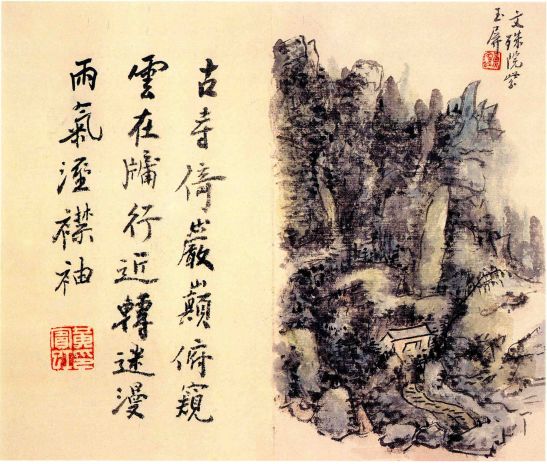 文殊院紫
玉屏
古寺倚巖巔俯窺
雲在牖行近轉迷漫
雨氣溼襟袖